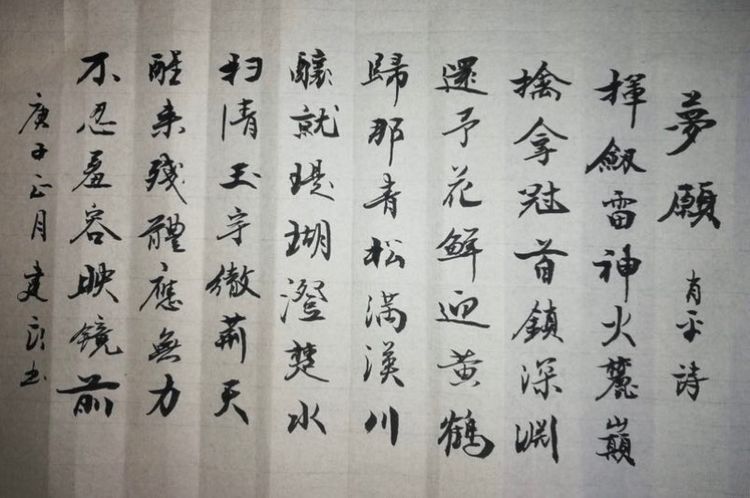 夢願 肖平詩
揮劔雷神火麓巔
擒拿冠首鎮深淵
還予花鮮迎黄鶴
歸那青松满漢川
釀就瑅瑚澄楚水
扫清玉宇徹荊天
醒来残體應無力
不忍羞容映鏡前
庚子正月建书